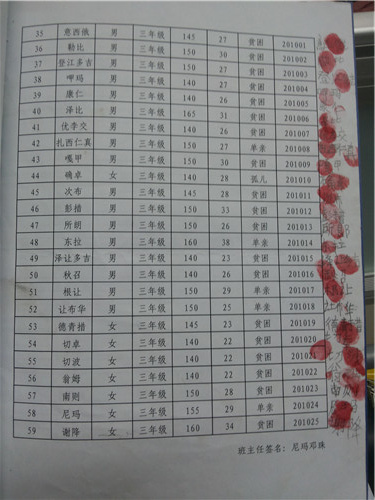 35 意西俄 男 三年级 145 27 贫困 201001
36 勒比 男 三年级 150 30 贫困 201002
37 登江多吉 男 三年级 150 30 贫困 201003
38 呷玛 男 三年级 150 26 贫困 201004
39 康仁 男 三年级 140 26 贫困 201005
40 泽比 男 三年级 165 31 贫困 201006
41 优李交 男 三年级 140 26 贫困 201007
42 扎西仁真 男 三年级 150 27 单亲 201008
43 嘎甲 男 三年级 150 30 贫困 201009
44 确卓 女 三年级 140 28 孤儿 201010
45 次布 男 三年级 150 28 贫困 201011
46 彭措 男 三年级 150 33 贫困 201012
47 所朗 男 三年级 150 26 贫困 201013
48 东拉 男 三年级 160 38 单亲 201014
49 泽让多吉 男 三年级 140 24 贫困 201015
50 秋召 男 三年级 140 26 贫困 201016
51 根让 男 三年级 150 29 单亲 201017
52 让布华 男 三年级 150 25 单亲 201018
53 德青措 女 三年级 145 23 贫困 201019
54 切卓 女 三年级 140 22 贫困 201020
55 切波 女 三年级 140 22 贫困 201021
56 翁姆 女 三年级 140 22 贫困 201022
57 南则 女 三年级 150 28 贫困 201023
58 尼玛 女 三年级 155 29 单亲 201024
59 谢降 女 三年级 160 34 贫困 201025
班主任签名：尼玛邓珠